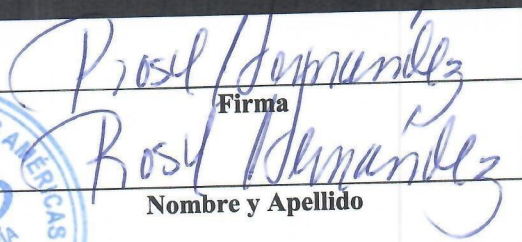 Rosy Hernández
Firma
Rosy Hernández
Nombre y Apellido
AMÉRICAS